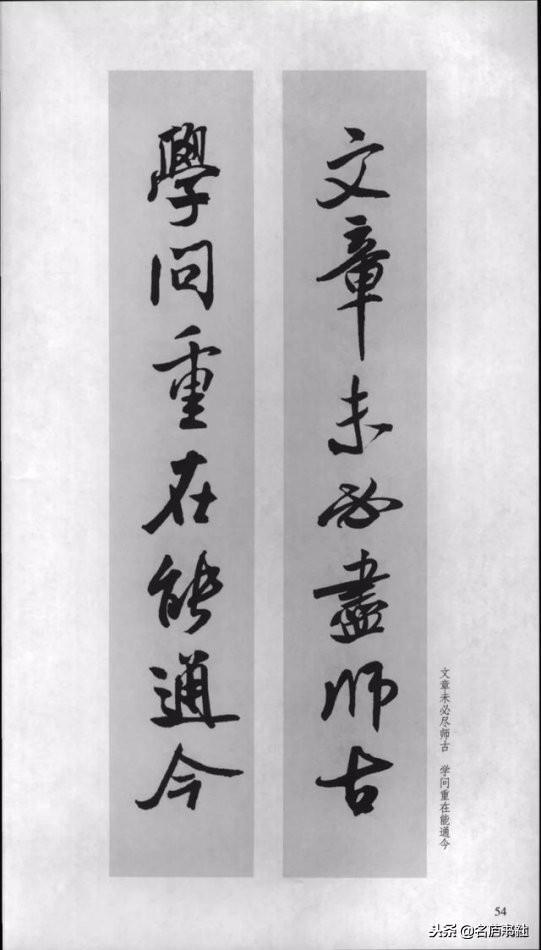 文章未必盡师古
學问重在能通今
文章未必尽师古　学问重在能通今
54
头条 @名庐书社